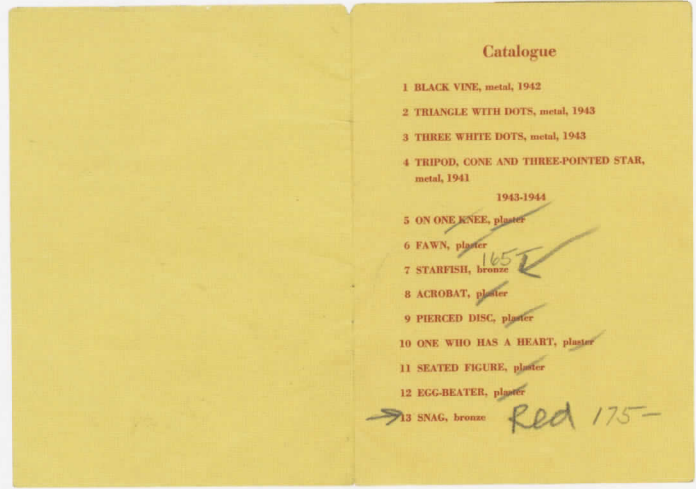 Catalogue
1 BLACK VINE, metal, 1942
2 TRIANGLE WITH DOTS, metal, 1943
3 THREE WHITE DOTS, metal, 1943
4 TRIPOD, CONE AND THREE-POINTED STAR,
metal, 1941
1943-1944
5 ON ONE KNEE, plaster
6 FAWN, plaster
165-
7 STARFISH, bronze
8 ACROBAT, plaster
9 PIERCED DISC, plaster
10 ONE WHO HAS A HEART, plaster
11 SEATED FIGURE, plaster
12 EGG-BEATER, plaster
13 SNAG, bronze Red 175-